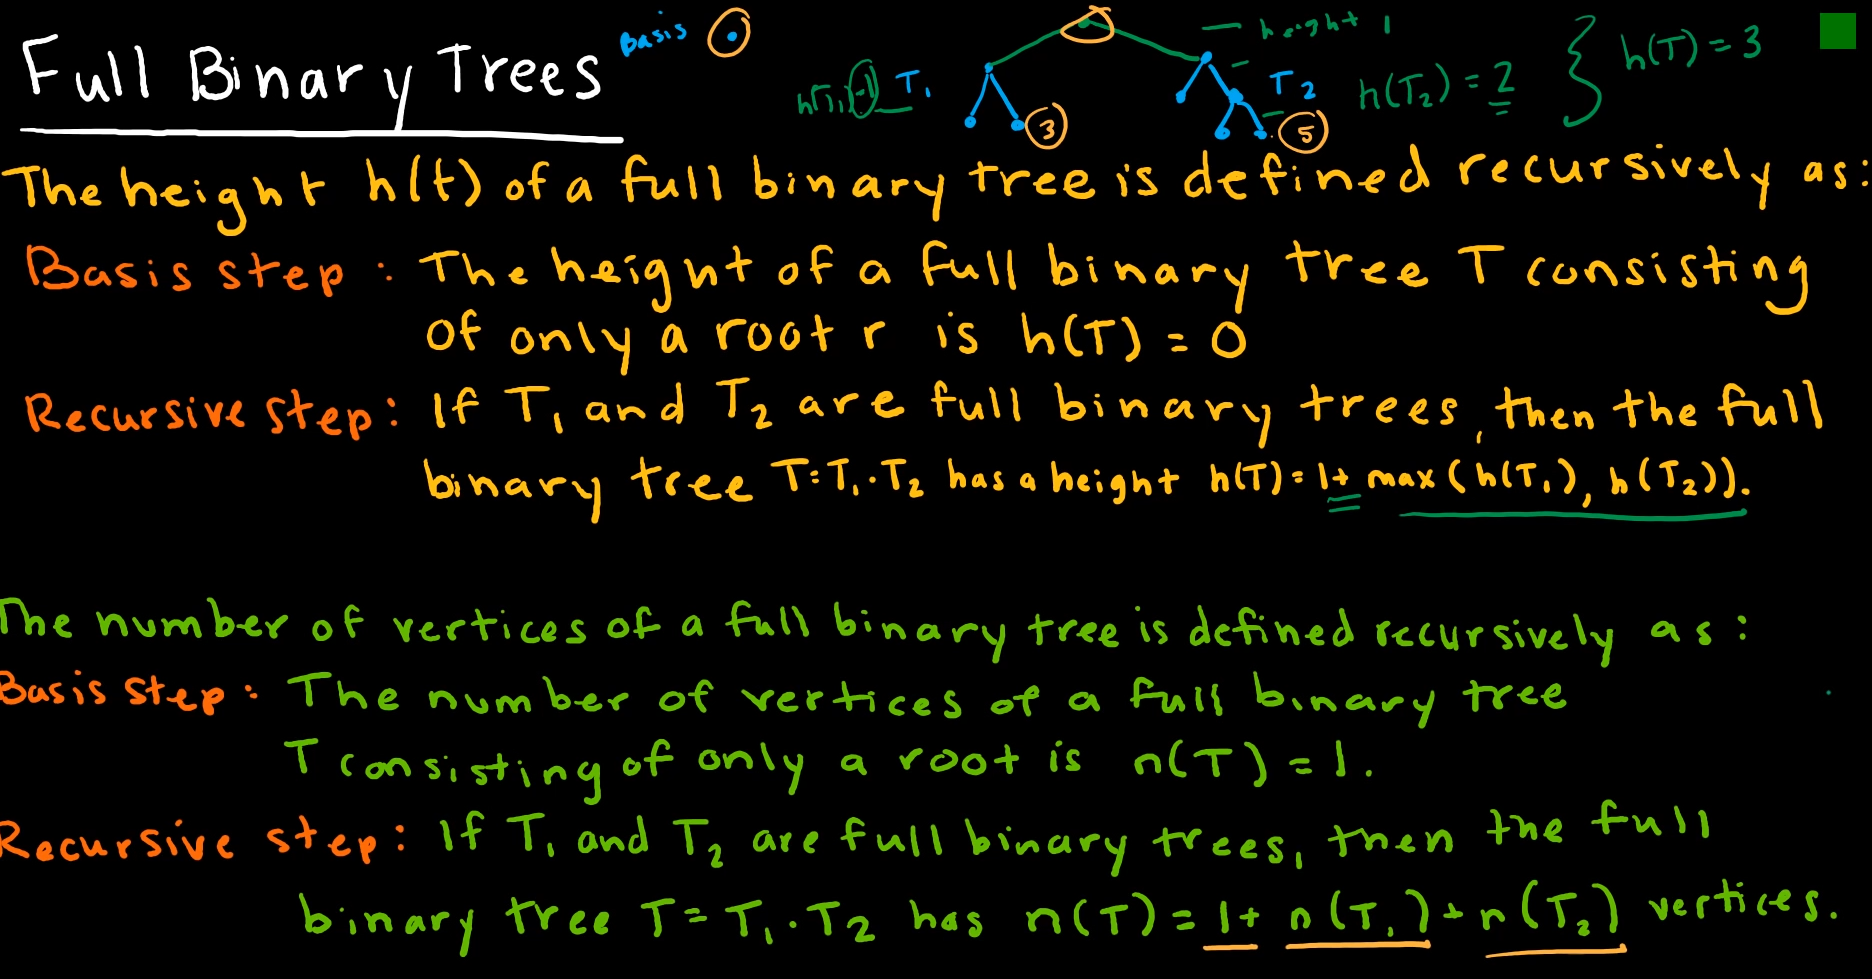 Full Binary Trees
Basis
height 1
h(T₁)=1 T₁
T₂ h(T₂) = 2
h(T) = 3
3
5
The height h(t) of a full binary tree is defined recursively as:
Basis step: The height of a full binary tree T consisting
of only a root r is h(T) = 0
Recursive step: If T₁ and T₂ are full binary trees, then the full
binary tree T=T₁·T₂ has a height h(T)=1+ max(h(T₁), h(T₂)).
The number of vertices of a full binary tree is defined recursively as:
Basis step: The number of vertices of a full binary tree
T consisting of only a root is n(T) = 1.
Recursive step: If T₁ and T₂ are full binary trees, then the full
binary tree T = T₁·T₂ has n(T) = 1+ n(T₁) + n(T₂) vertices.